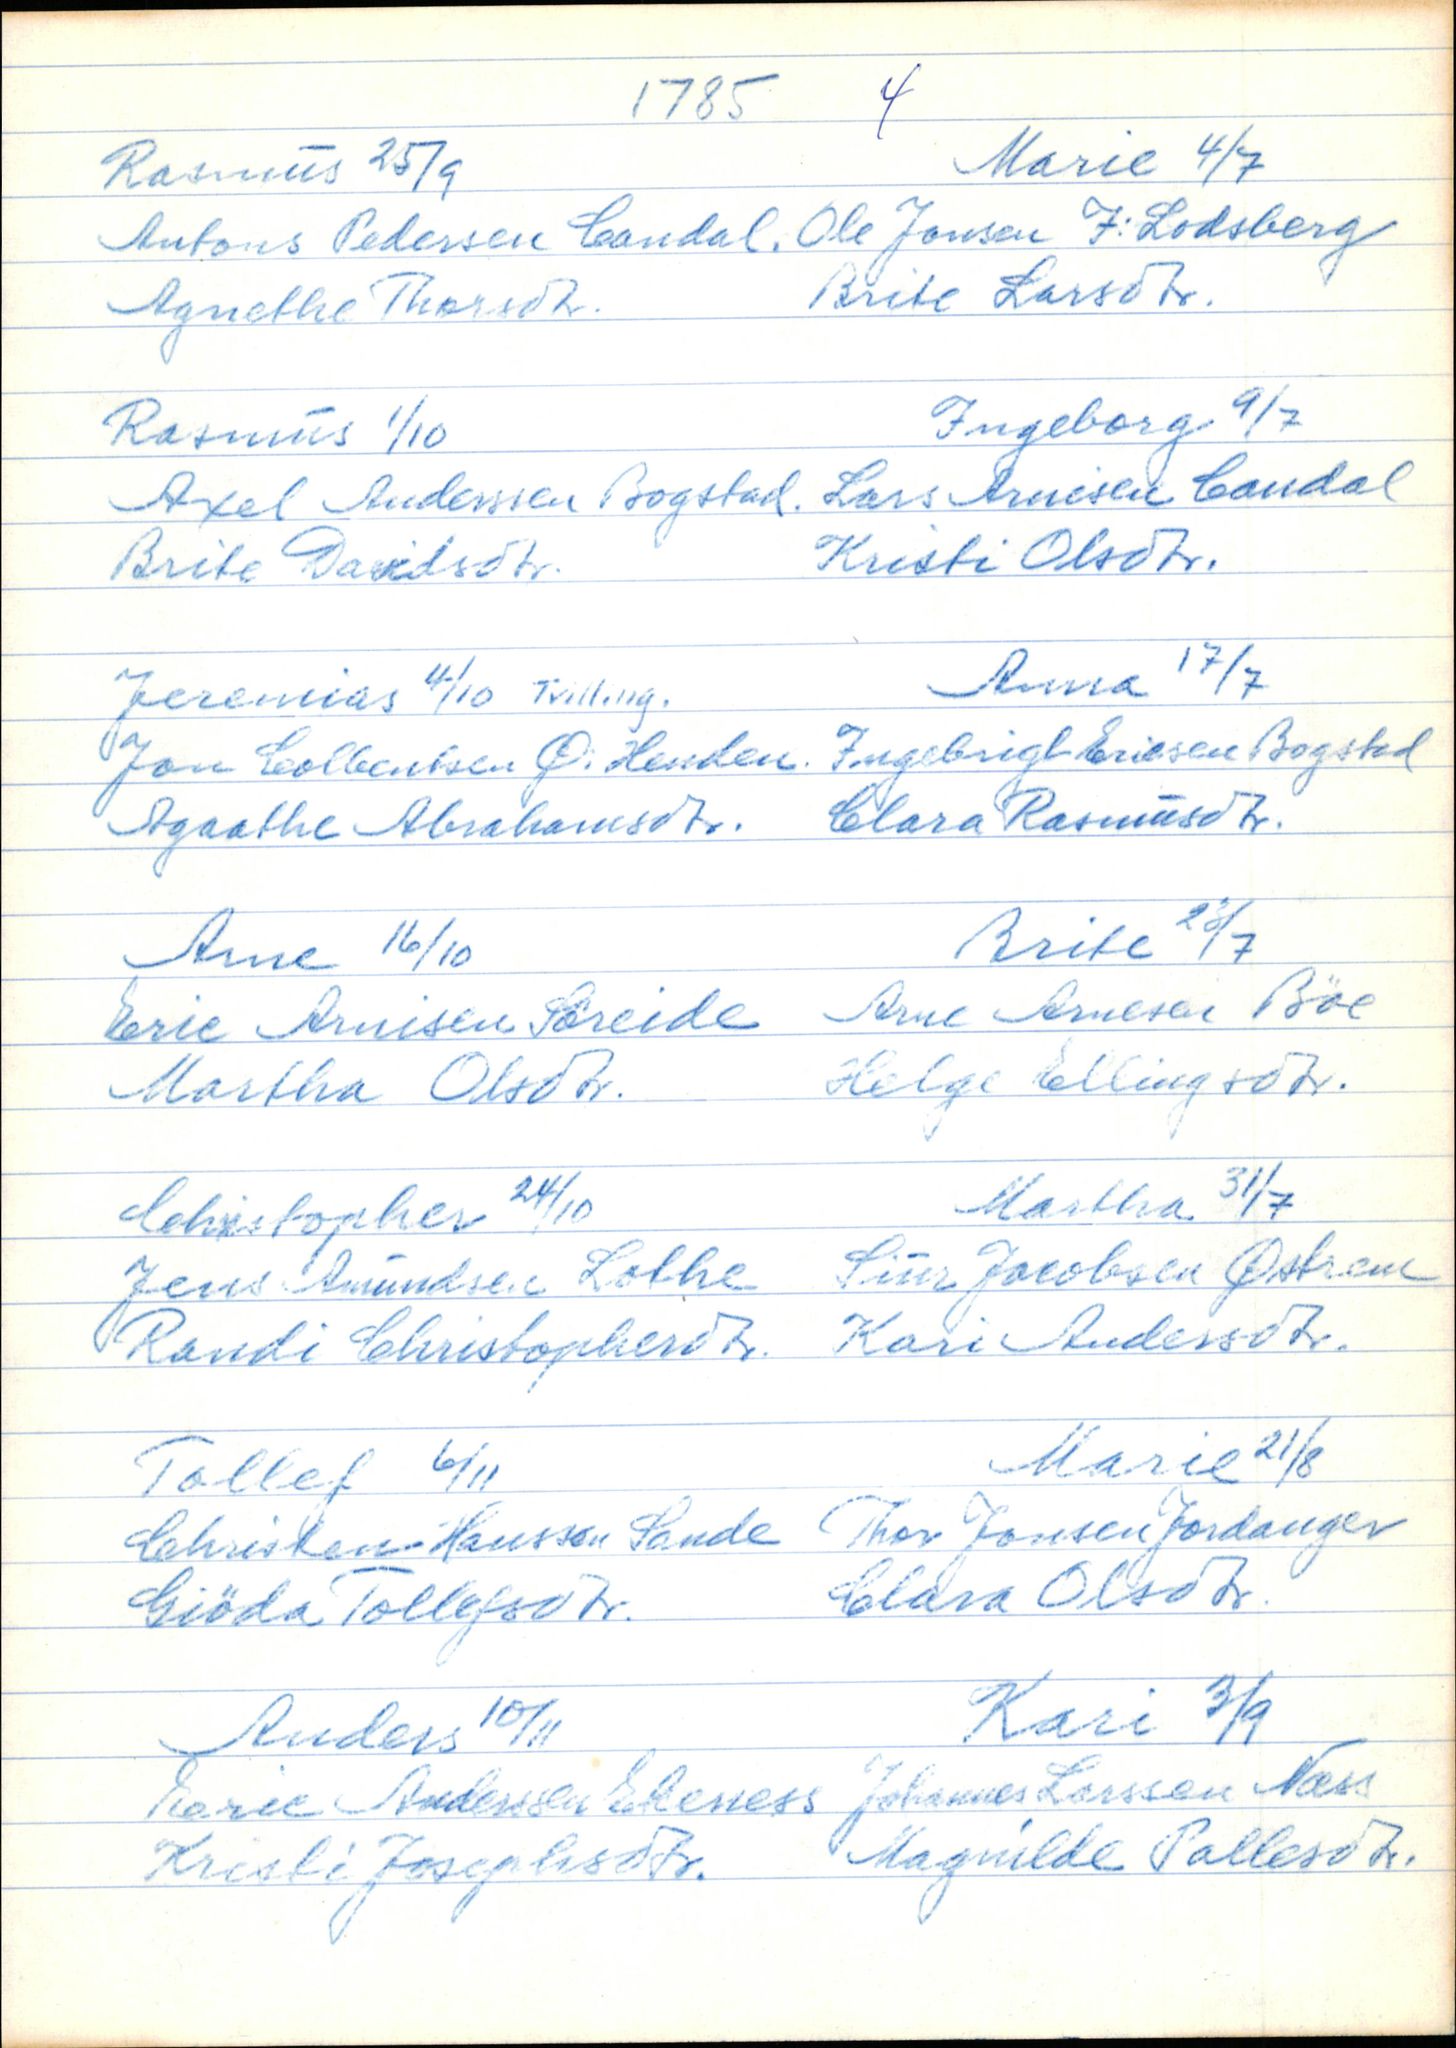 1785 4
Rasmus 25/9
Antons Pedersen Candal.
Agnethe Thorsdtr.
Rasmus 1/10
Axel Anderssen Bogstad.
Brite Davidsdtr.
Jeremias 4/10 Tvilling.
Jon Colbentsen Ø: Henden.
Agaathe Abrahamsdtr.
Arne 16/10
Eric Arnisen Söreide
Martha Olsdtr.
Christopher 24/10
Jens Amundsen Lothe
Randi Christopherdtr.
Tollef 6/11
Christen Hanssen Sande
Giöda Tollefsdtr.
Anders 10/11
Anderssen
Kristi Josephsdtr.
Marie 4/7
Ole Jonsen I: Lodsberg
Brite Larsdtr.
Ingeborg 9/7
Lars Arnesen Candal
Kristi Olsdtr.
Anna 17/7
Ingebrigt Ericsen Bogstad
Clara Rasmusdtr.
Brite 23/7
Arne Arnesen Böe
Helge Ellingsdtr.
Martha 31/7
Siur Jacobsen Østrem
Kari Andersdtr.
Marie 21/8
Thor Jonsen Jordanger
Clara Olsdtr.
Kari 3/9
Johannes Larssen Næss
Magnilde Pallesdtr.